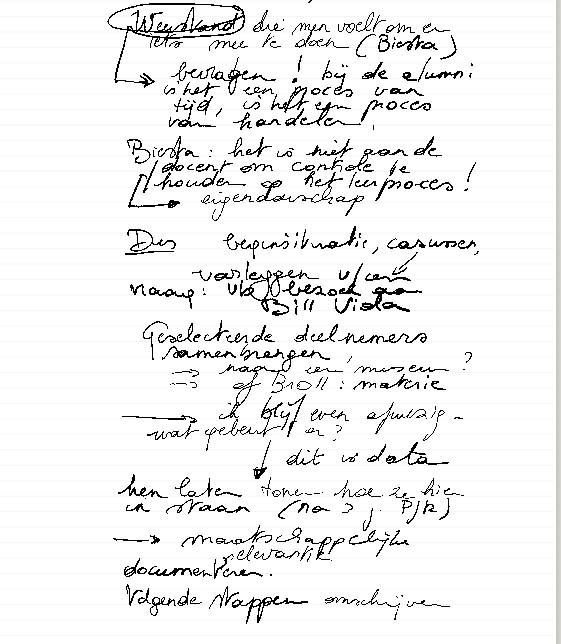 Weerstand die men voelt om er
iets mee te doen (Biesta)
bevragen! bij de alumni
is het een proces van
tijd, is het een proces
van handelen!
Biesta: het is niet aan de
docent om controle te
houden op het leerproces!
eigenaarschap
Dus beginsituatie, casussen,
voorleggen v/een
vraag: vb/ bezoek aan
Bill Viola
Geselecteerde deelnemers
samenbrengen,
→ naar een museum?
→ of Bioll: materie
→ ik blijf even afwezig -
wat gebeurt er?
dit is data
hen laten tonen hoe ze hier
in staan (na 3 j. PJK)
→ maatschappelijke
relevantie
documenteren.
Volgende stappen omschrijven